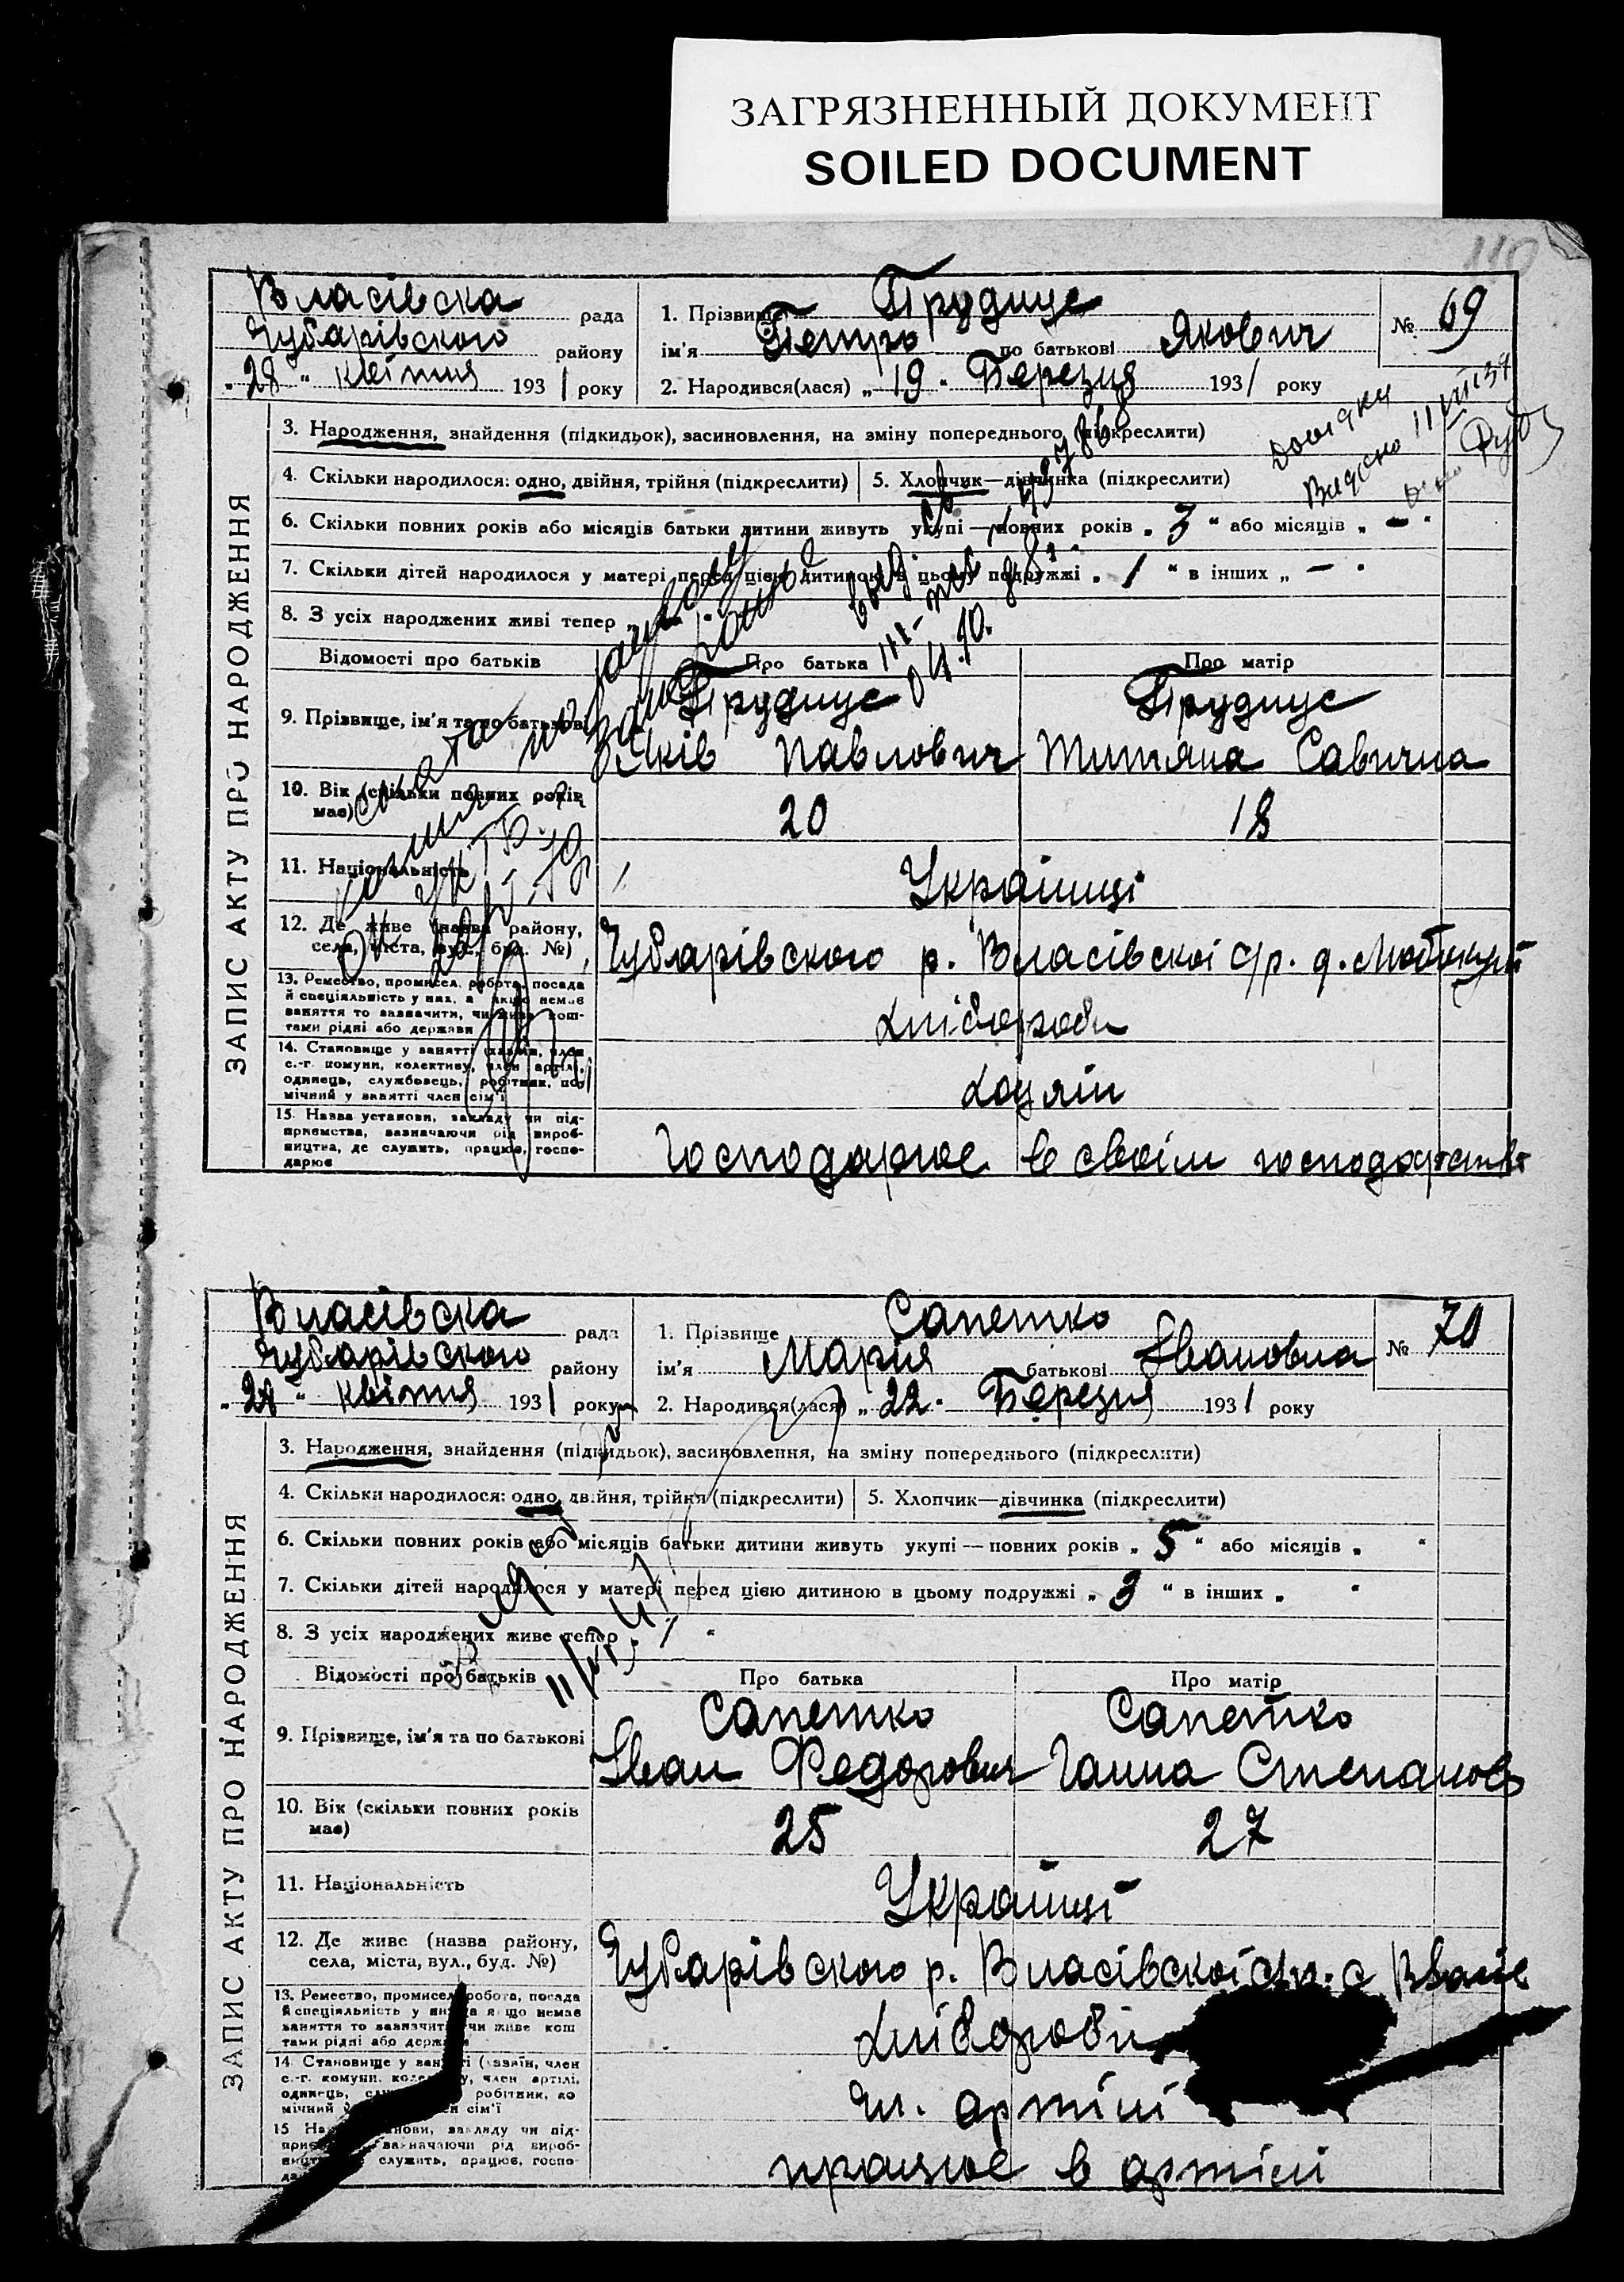 ЗАГРЯЗНЕННЫЙ ДОКУМЕНТ
SOILED DOCUMENT
110
ЗАПИС АКТУ ПРО НАРОДЖЕННЯ
Власівска рада
Чубарівского району
„28“ квітня 1931 року
1. Прізвище Прудиус
ім'я Петро по батькові Якович
№ 69
2. Народився(лася) „19“ Березня 1931 року
Довідку
Видано 11
3. Народження, знайдення (підкидьок), засиновлення, на зміну попереднього (підкреслити)
4. Скільки народилося: одно, двійня, трійня (підкреслити) 5. Хлопчик—дівчинка (підкреслити)
6. Скільки повних років або місяців батьки дитини живуть укупі — повних років „3“ або місяців „—“
7. Скільки дітей народилося у матері перед цією дитиною в цьому подружжі „1“ в інших „—“
8. З усіх народжених живі тепер „
Відомості про батьків Про батька Про матір
9. Прізвище, ім'я та по батькові Прудиус Прудиус
Яків Павлович Титяна Савична
10. Вік (скільки повних років має) 20 18
11. Національність Українці
12. Де живе (назва району, села, міста, вул., буд. №) Чубарівского р. Власівскої с/р.
13. Ремество, промисел, робота, посада й спеціяльність у них, а якщо немає заняття то зазначити, чи живе коштами рідні або держави Хлібороби
14. Становище у занятті (хазяїн, член с.-г. комуни, колективу, член артілі, одинець, службовець, робітник, помічний у занятті член сім'ї
15. Назва установи, закладу чи підприємства, зазначаючи рід виробництва, де служить, працює, господарює Господарює в своїм господарстві
ЗАПИС АКТУ ПРО НАРОДЖЕННЯ
Власівска рада
Чубарівского району
„28“ квітня 1931 року
1. Прізвище Сапетко
ім'я Марія батькові Івановна
№ 70
2. Народився(лася) „22“ Березня 1931 року
3. Народження, знайдення (підкидьок), засиновлення, на зміну попереднього (підкреслити)
4. Скільки народилося: одно, двійня, трійня (підкреслити) 5. Хлопчик—дівчинка (підкреслити)
6. Скільки повних років або місяців батьки дитини живуть укупі — повних років „5“ або місяців „ “
7. Скільки дітей народилося у матері перед цією дитиною в цьому подружжі „3“ в інших „ “
8. З усіх народжених живе тепер „1“
Відомості про батьків Про батька Про матір
9. Прізвище, ім'я та по батькові Сапетко Сапетко
Іван Федорович Ганна Степанов
10. Вік (скільки повних років має) 25 27
11. Національність Українці
12. Де живе (назва району, села, міста, вул., буд. №) Чубарівского р. Власівскої с/р. с
13. Ремество, промисел, робота, посада й спеціяльність у них, а якщо немає заняття то зазначити, чи живе коштами рідні або держави Хлібороби
14. Становище у занятті (хазяїн, член с.-г. комуни, колективу, член артілі, одинець, службовець, робітник, помічний у занятті член сім'ї чл. артілі
15. Назва установи, закладу чи підприємства, зазначаючи рід виробництва, де служить, працює, господарює працює в артілі